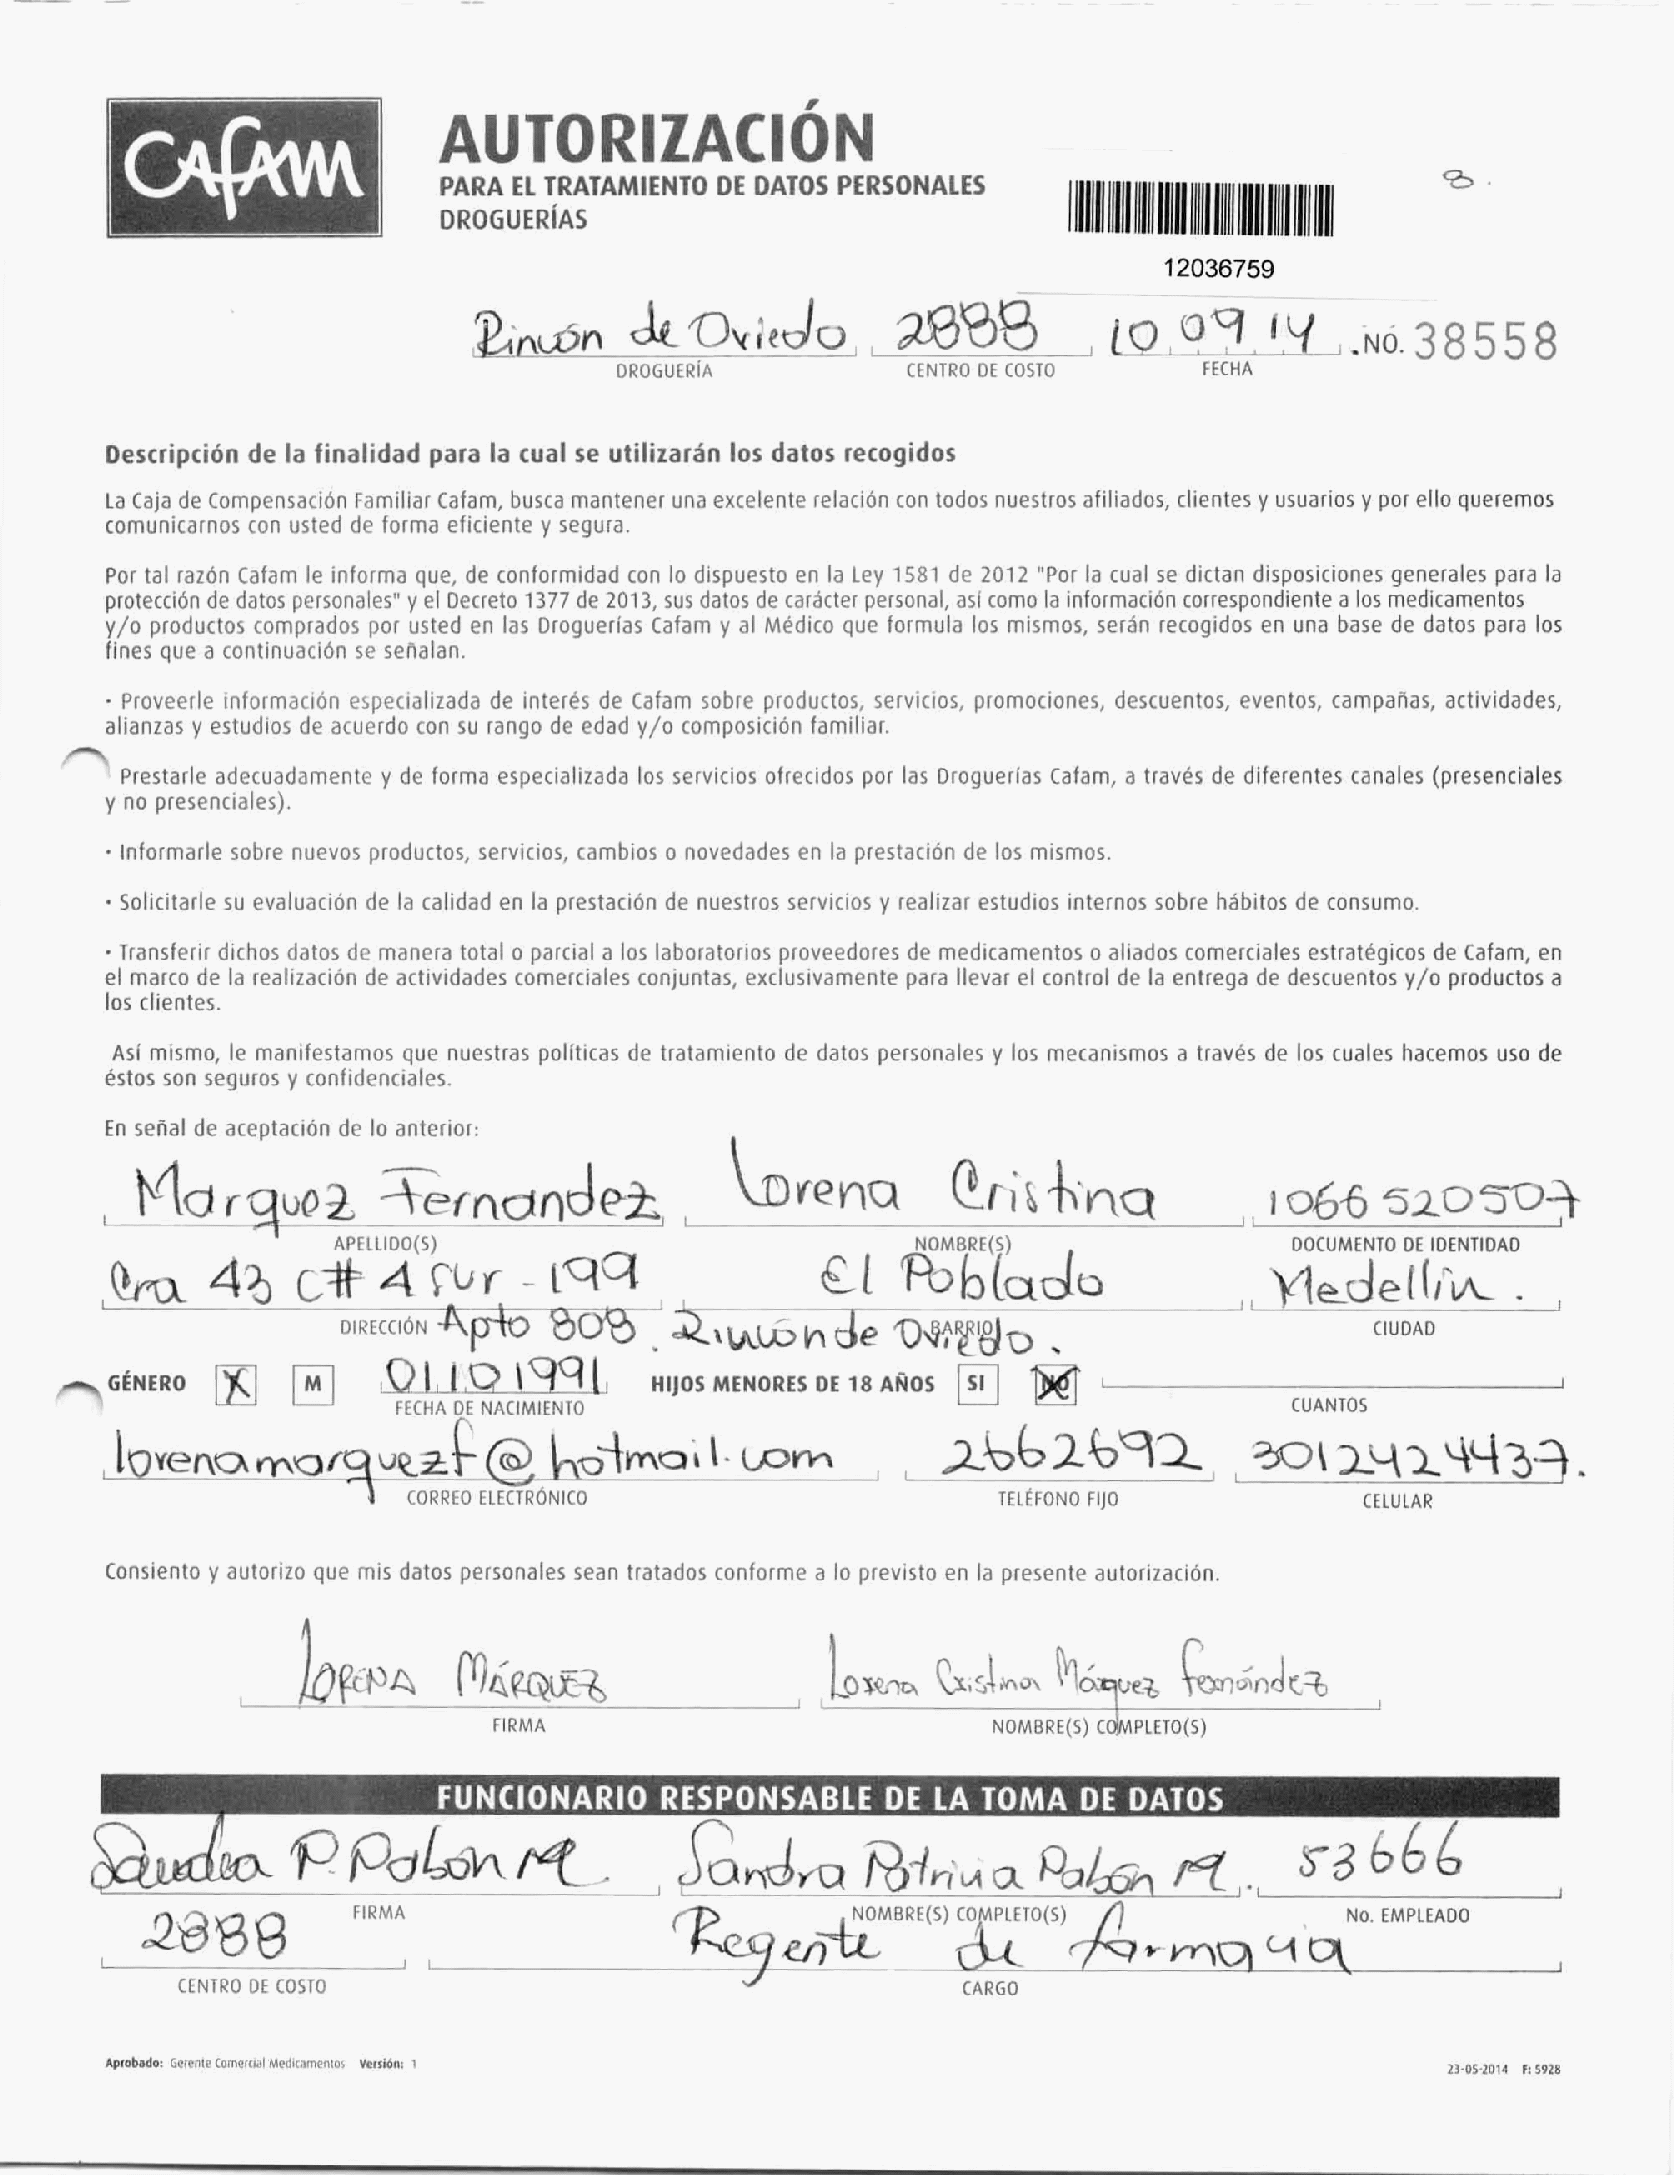 CAFAM
AUTORIZACIÓN
PARA EL TRATAMIENTO DE DATOS PERSONALES
DROGUERÍAS
8.
12036759
Rincón de Oviedo 2888 10 09 14 .NO. 38558
DROGUERÍA CENTRO DE COSTO FECHA
Descripción de la finalidad para la cual se utilizarán los datos recogidos
La Caja de Compensación Familiar Cafam, busca mantener una excelente relación con todos nuestros afiliados, clientes y usuarios y por ello queremos
comunicarnos con usted de forma eficiente y segura.
Por tal razón Cafam le informa que, de conformidad con lo dispuesto en la Ley 1581 de 2012 "Por la cual se dictan disposiciones generales para la
protección de datos personales" y el Decreto 1377 de 2013, sus datos de carácter personal, así como la información correspondiente a los medicamentos
y/o productos comprados por usted en las Droguerías Cafam y al Médico que formula los mismos, serán recogidos en una base de datos para los
fines que a continuación se señalan.
· Proveerle información especializada de interés de Cafam sobre productos, servicios, promociones, descuentos, eventos, campañas, actividades,
alianzas y estudios de acuerdo con su rango de edad y/o composición familiar.
Prestarle adecuadamente y de forma especializada los servicios ofrecidos por las Droguerías Cafam, a través de diferentes canales (presenciales
y no presenciales).
· Informarle sobre nuevos productos, servicios, cambios o novedades en la prestación de los mismos.
· Solicitarle su evaluación de la calidad en la prestación de nuestros servicios y realizar estudios internos sobre hábitos de consumo.
· Transferir dichos datos de manera total o parcial a los laboratorios proveedores de medicamentos o aliados comerciales estratégicos de Cafam, en
el marco de la realización de actividades comerciales conjuntas, exclusivamente para llevar el control de la entrega de descuentos y/o productos a
los clientes.
Así mismo, le manifestamos que nuestras políticas de tratamiento de datos personales y los mecanismos a través de los cuales hacemos uso de
éstos son seguros y confidenciales.
En señal de aceptación de lo anterior:
Marquez Fernandez Lorena Cristina 1066520507
APELLIDO(S) NOMBRE(S) DOCUMENTO DE IDENTIDAD
Cra 43 C # 4 sur - 199 El Poblado Medellín.
DIRECCIÓN Apto 808. Rincón de Oviedo. BARRIO CIUDAD
GÉNERO X M 01101991 HIJOS MENORES DE 18 AÑOS SI NO
FECHA DE NACIMIENTO CUANTOS
lorenamarquezf@hotmail.com 2662692 3012424437.
CORREO ELECTRÓNICO TELÉFONO FIJO CELULAR
Consiento y autorizo que mis datos personales sean tratados conforme a lo previsto en la presente autorización.
LORENA MÁRQUEZ Lorena Cristina Márquez Fernández
FIRMA NOMBRE(S) COMPLETO(S)
FUNCIONARIO RESPONSABLE DE LA TOMA DE DATOS
Sandra P. Pabón M Sandra Patricia Pabón M. 53666
FIRMA NOMBRE(S) COMPLETO(S) No. EMPLEADO
2888 Regente de farmacia
CENTRO DE COSTO CARGO
Aprobado: Gerente Comercial Medicamentos Versión: 1 23-05-2014 F: 5928